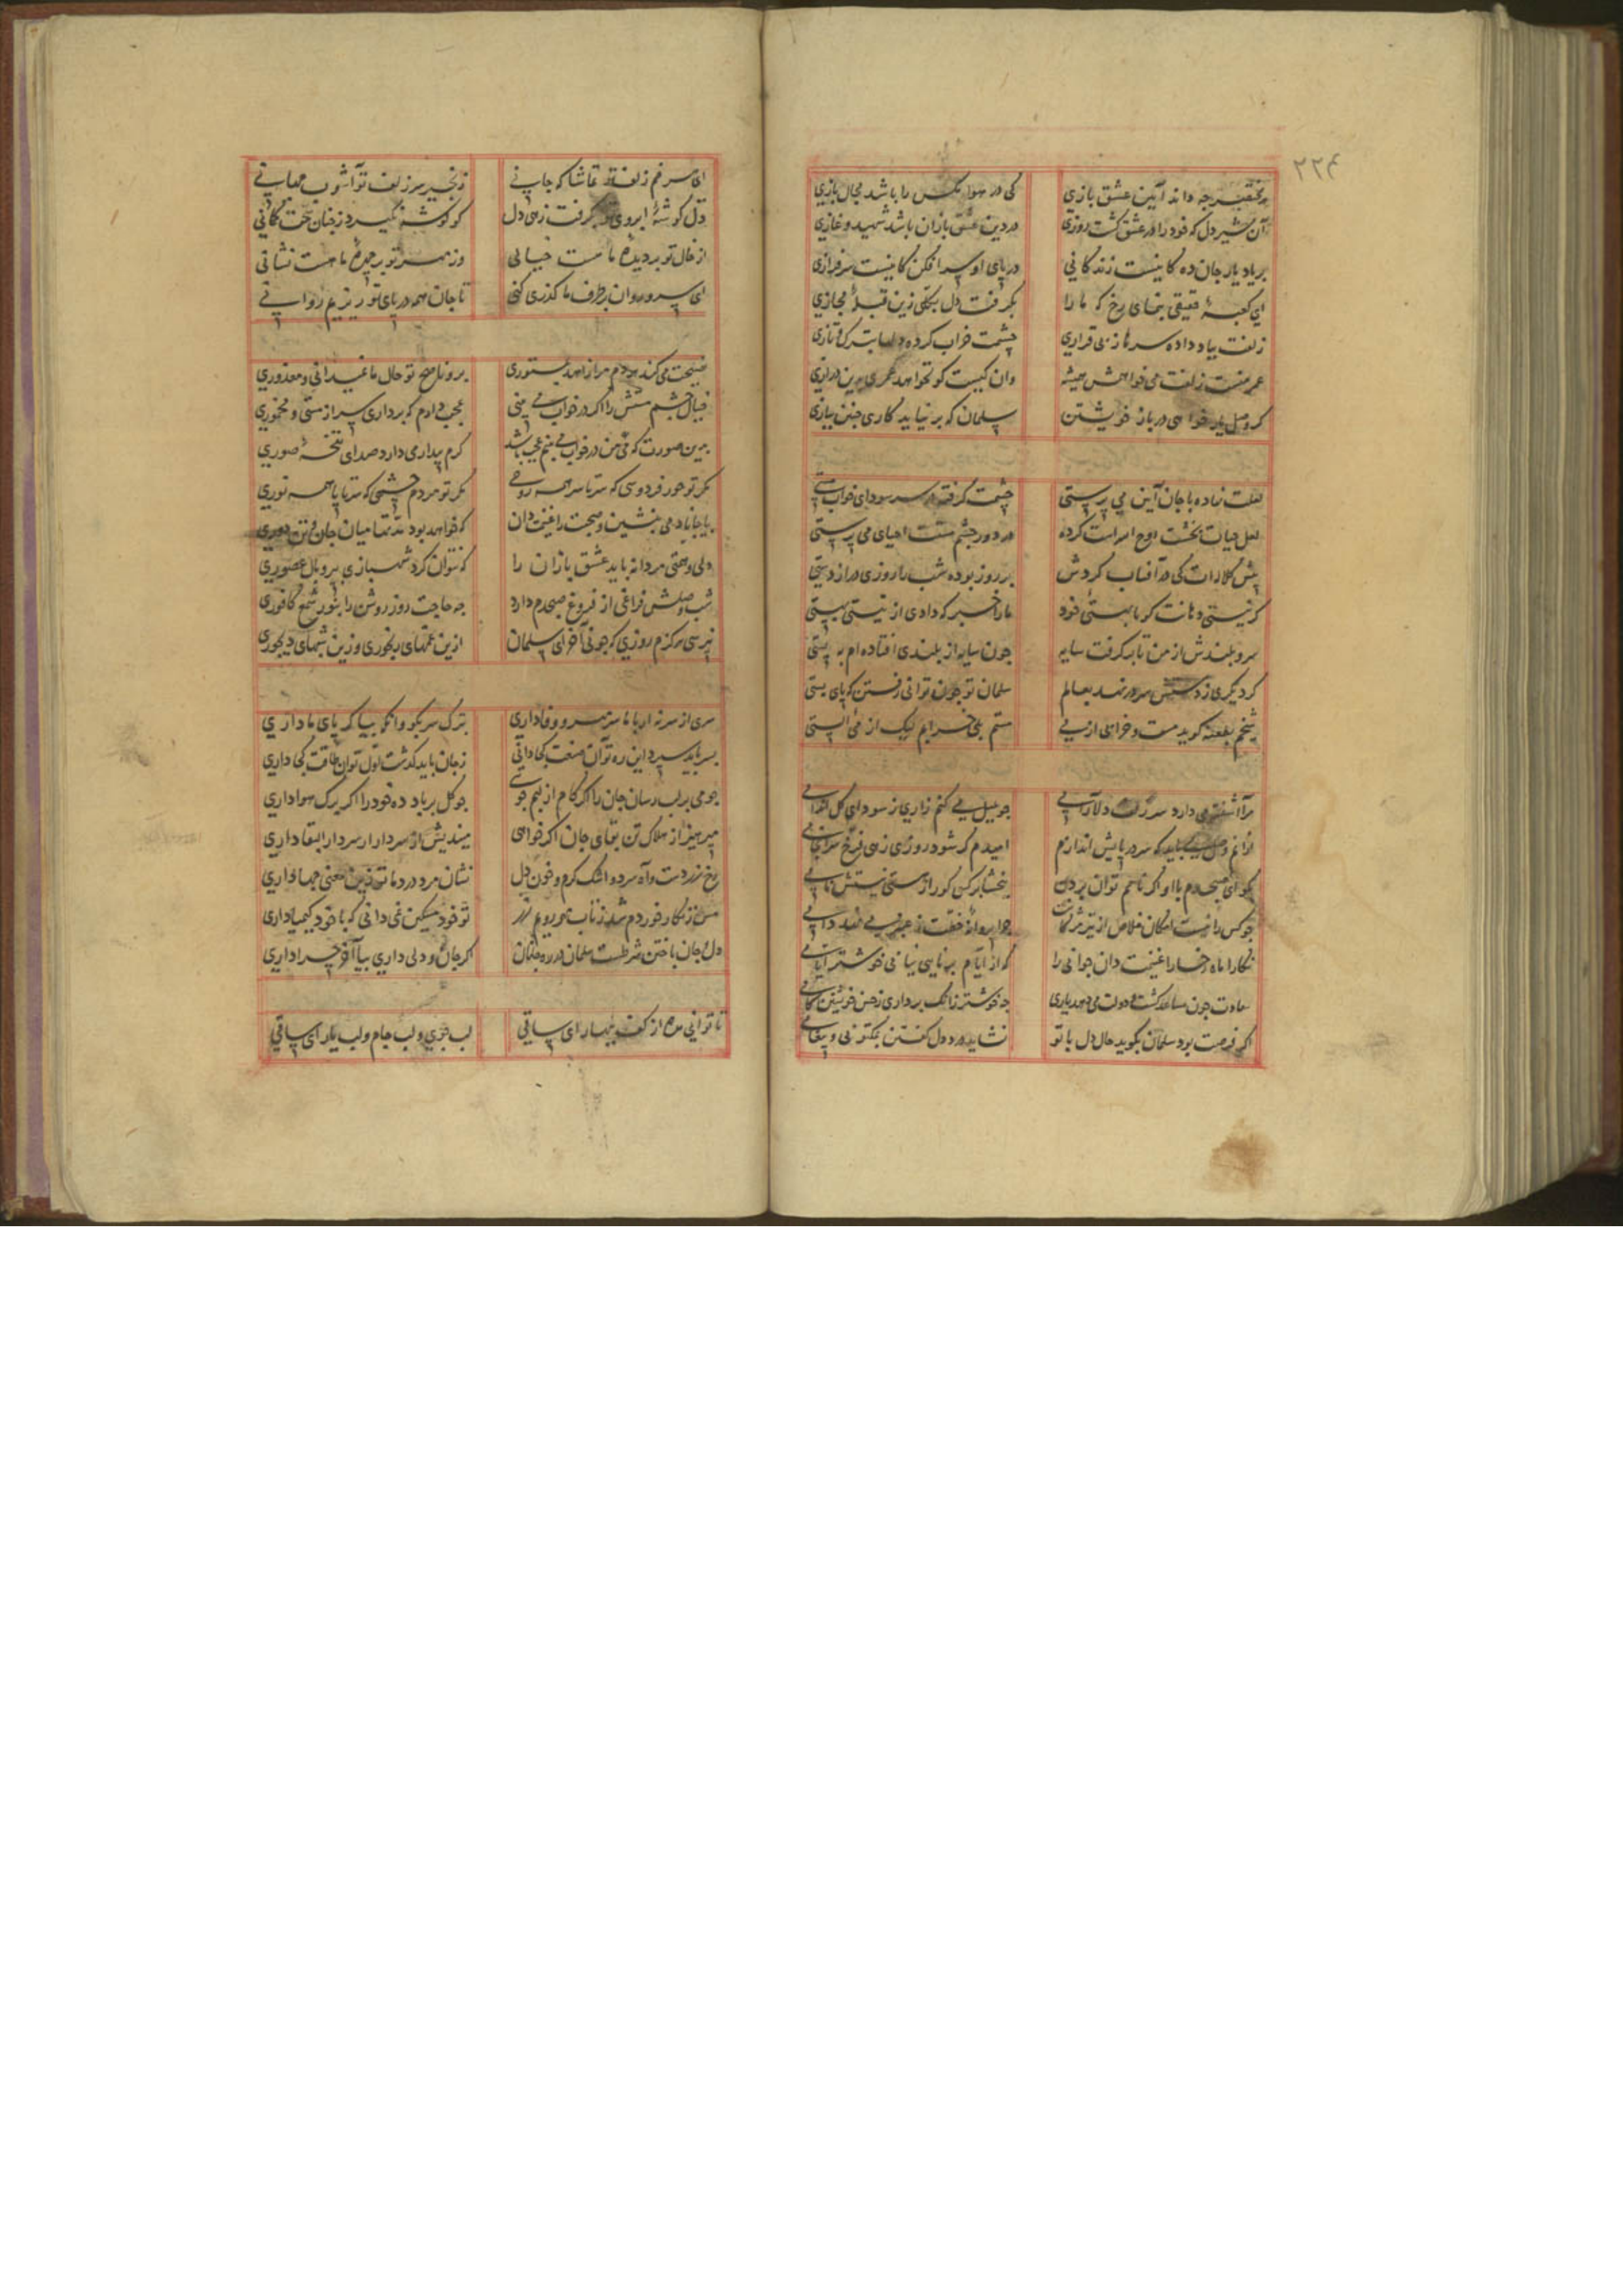 ۲۲۴
هر بی‌خبر چه داند آیین عشق بازی کی در هوا مکس را باشد مجال بازی
آن شیر دل که خود را در عشق کشت روزی در دین عشق بازان باشد شهید و غازی
بر یاد یار جان ده کاینست زندکانی در پای او سر افکن کاینست سرفرازی
ای کعبهٔ حقیقی بنمای رخ که ما را بکرفت دل بکلی زین قبلهٔ مجازی
زلفت بباد داده سرها ز بی قراری چشمت خراب کرده دلها بترک و تازی
عمر منست زلفت می خواهمش همیشه وان کیست کو نخواهد عمری بدین درازی
کر وصل یار خواهی در باز خویشتن سلمان که بر نیاید کاری چنین ببازی
لعلت نهاده با جان آیین می پرستی چشمت کرفته در سر سودای خواب مستی
لعل حیات بخشت روح اله است کرده در دور چشم مستت احیای می پرستی
پیش کلاله‌ات کی در آفتاب کردش بر روز بوده شب را روزی دراز دستی
کر نیستی دهانت کو با بهستی خود ما را خبر که دادی از نیستی بهستی
سرو بلندش از من تا بر کرفت سایه چون سایه از بلندی افتاده‌ام به پستی
کر دیکری ز دستش سر در نهد بعالم سلمان تو چون توانی رفتن که پای بستی
شیخم بطعنه کوید مست و خرابی از می مستم بلی خرابم لیک از می الستی
مرا آشفته می دارد سر زلف دلارامی چو بلبل می کنم زاری ز سودای کل اندامی
از آنم وصل می باید که سر در پایش اندازم امیدم کر شود روزی زهی فرخ سرانجامی
بکو ای صبحدم با او اکر نامم توان بردن ببخشا بر کسی کو را ز هستی نیستش نامی
چو کس را نیست امکان خلاص از تیر مژکانت چرا پروانهٔ خطت ز عنبر می نهد دامی
نکارا ماه رخسارا غنیمت دان جوانی را که از ایام برنایی نیابی خوشتر ایامی
سعادت چون مساعد کشت و دولت می دهد یاری چه خوشتر زانک برداری ز حسن خویشتن کامی
اکر فرصت بود سلمان بکوید حال دل با تو نشاید درد دل کفتن بمکتوبی و پیغامی
ای سر خم زلف تو تماشا که جانی زنجیر سر زلف تو آشوب جهانی
دل کوشهٔ ابروی تو بکرفت زهی دل کو کوشه نکیرد ز چنان سخت کمانی
از خال تو بر دیدهٔ ما هست خیالی وز مهر تو بر چهرهٔ ما هست نشانی
ای سرو روان بر طرف ما کذری کن تا جان همه در پای تو ریزیم روانی
نصیحت می کند هر دم مرا زاهد بمستوری برو ناصح تو حال ما نمیدانی و معذوری
خیال چشم مستش را اکر در خواب می بینی عجب دارم که برداری سر از مستی و مخموری
بدین صورت که من در خواب می بینم عجب باشد کرم بیدار می دارد صدای نفخهٔ صوری
مکر تو حور فردوسی که سر تا سر همه روحی مکر تو مردم چشمی که سر تا پا همه نوری
بیا جانا دمی بنشین و صحبت را غنیمت دان که خواهد بود مدتها میان جان و تن دوری
دلی و همتی مردانه باید عشق بازان را که نتوان کرد شهبازی بپر و بال عصفوری
شب وصلش فراغی از فروغ صبحدم دارد چه حاجت روز روشن را بنور شمع کافوری
نپرسی هرکزم روزی که چونی آخر ای سلمان ازین غمهای رنجوری و زین شبهای دیجوری
سری از سر نه ار با ما سر مهر و وفا داری بترک سر بکو وانکه بیا کر پای ما داری
بسر باید سپرد این ره تو آن صنعت کجا دانی ز جان باید کذشت اول تو آن طاقت کجا داری
چو می بر لب رسان جان را اکر کام از لبم جویی چو کل بر باد ده خود را اکر برک هوا داری
بپرهیز از هلاک تن بقای جان اکر خواهی میندیش از سر دار ار سر دار البقا داری
رخ زردست و آه سرد و اشک کرم و خون دل نشان مرد درد ما تو زین معنی چها داری
مس زنکار خوردم شد ز تاب مهر رویم زر تو خود مسکین نمی دانی که با خود کیمیا داری
دل و جان باختن شرطست سلمان در ره جانان اکر جان و دلی داری بیا آخر چرا داری
تا توانی مده از کف بهار ای ساقی لب جوی و لب جام و لب یار ای ساقی